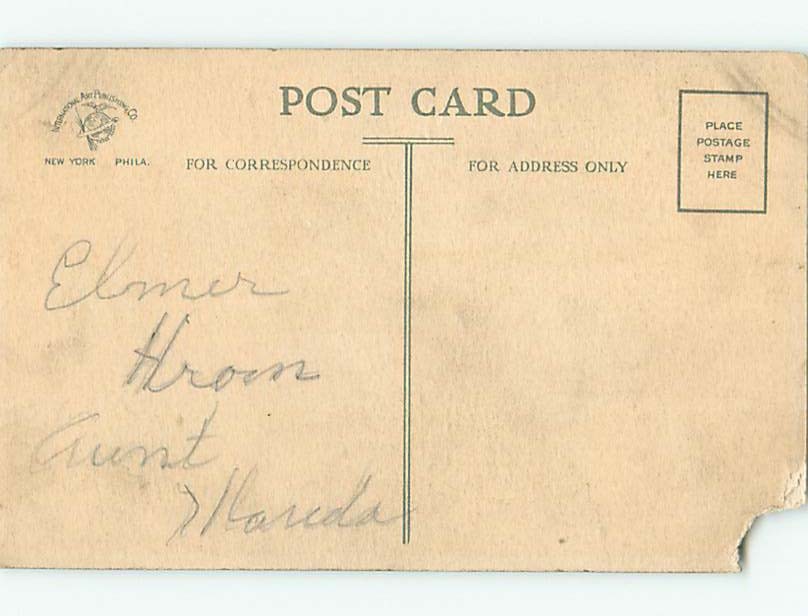 POST CARD
INTERNATIONAL ART PUBLISHING CO.
NEW YORK PHILA.
FOR CORRESPONDENCE
FOR ADDRESS ONLY
PLACE
POSTAGE
STAMP
HERE
Elmer
Hrom
Aunt